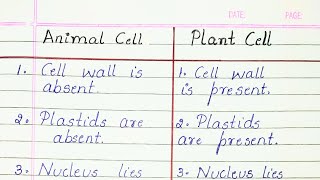 DATE PAGE
Animal Cell Plant Cell
1. Cell wall is 1. Cell wall
absent. is present.
2. Plastids are 2. Plastids
absent. are present.
3. Nucleus lies 3. Nucleus